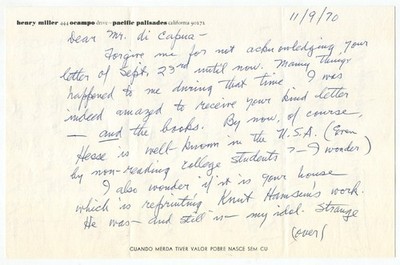 henry miller 444 ocampo drive – pacific palisades california 90272
11/9/70
Dear Mr. di Capua –
Forgive me for not acknowledging your
letter of Sept. 23rd until now. Many things
happened to me during that time. I was
indeed amazed to receive your kind letter
– and the books. By now, of course,
Hesse is well-known in the U.S.A. (Even
by non-reading college students? – I wonder)
I also wonder if it is your house
which is reprinting Knut Hamsun's work.
He was – and still is – my idol. Strange
(over)
CUANDO MERDA TIVER VALOR POBRE NASCE SEM CU